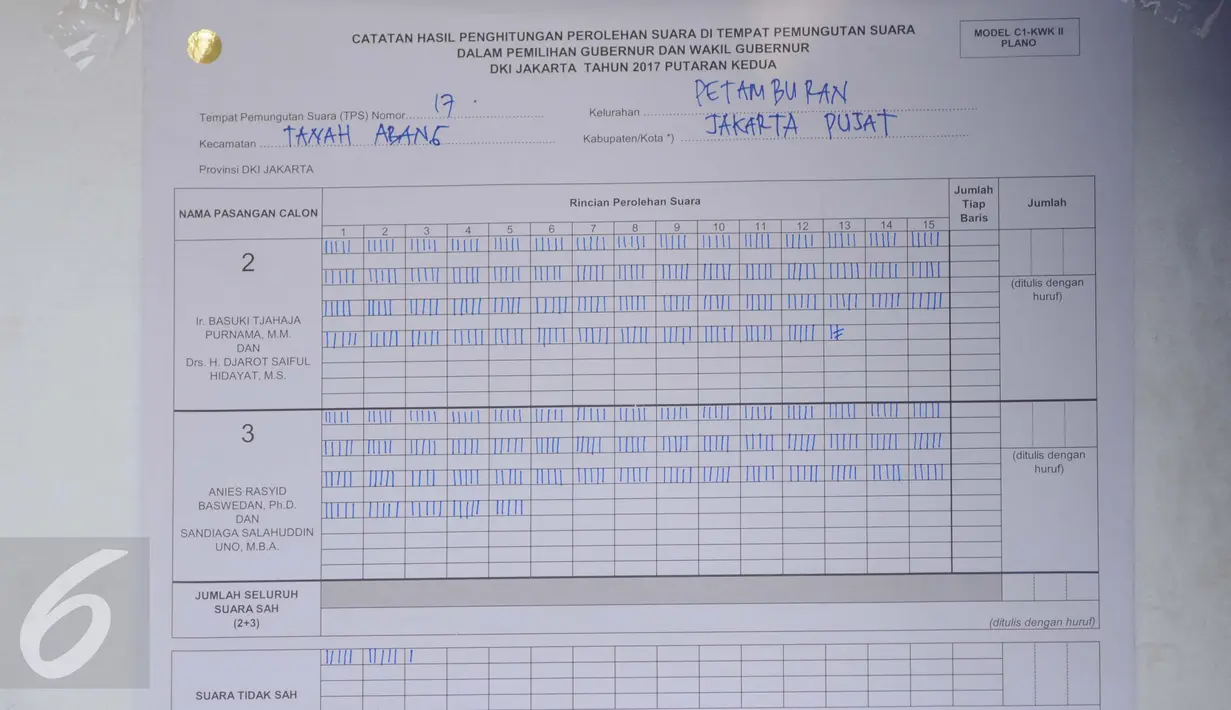 CATATAN HASIL PENGHITUNGAN PEROLEHAN SUARA DI TEMPAT PEMUNGUTAN SUARA
DALAM PEMILIHAN GUBERNUR DAN WAKIL GUBERNUR
DKI JAKARTA TAHUN 2017 PUTARAN KEDUA
MODEL C1-KWK II
PLANO
Tempat Pemungutan Suara (TPS) Nomor 17
Kelurahan PETAMBURAN
Kecamatan TANAH ABANG
Kabupaten/Kota *) JAKARTA PUSAT
Provinsi DKI JAKARTA
NAMA PASANGAN CALON
Rincian Perolehan Suara
Jumlah
Tiap
Baris
Jumlah
1 2 3 4 5 6 7 8 9 10 11 12 13 14 15
2
Ir. BASUKI TJAHAJA
PURNAMA, M.M.
DAN
Drs. H. DJAROT SAIFUL
HIDAYAT, M.S.
(ditulis dengan
huruf)
3
ANIES RASYID
BASWEDAN, Ph.D.
DAN
SANDIAGA SALAHUDDIN
UNO, M.B.A.
(ditulis dengan
huruf)
JUMLAH SELURUH
SUARA SAH
(2+3)
(ditulis dengan huruf)
SUARA TIDAK SAH
6